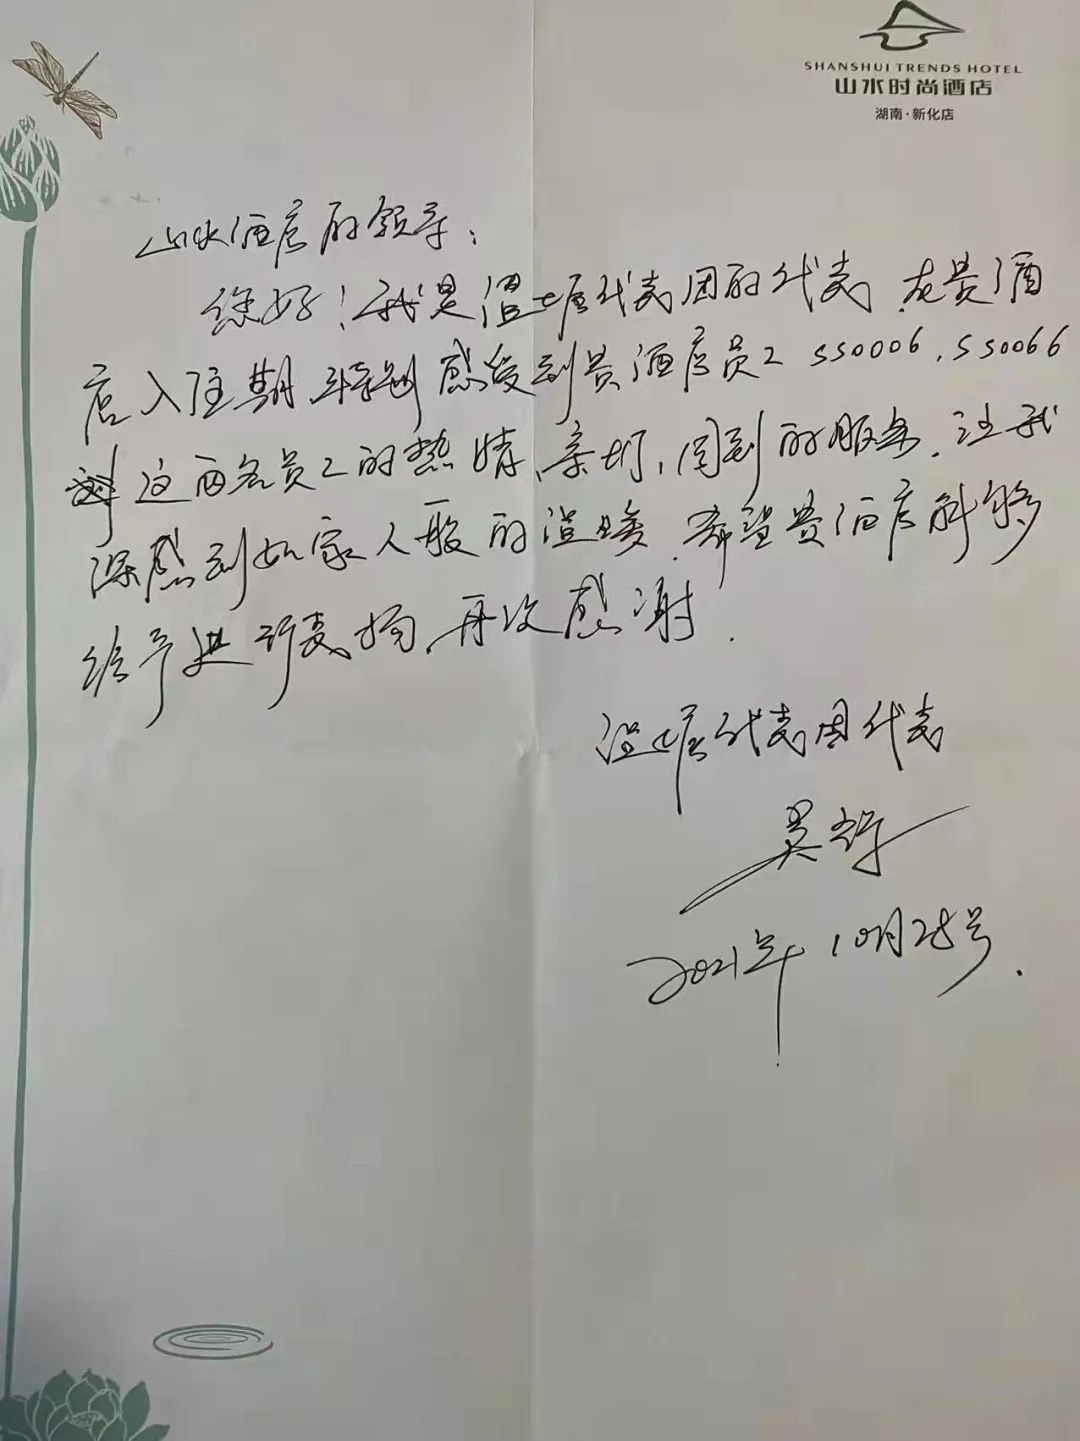 SHANSHUI TRENDS HOTEL
山水时尚酒店
湖南·新化店
山水酒店的领导:
您好!我是温塘代表团的代表,在贵酒
店入住期,特别感受到贵酒店员工SS0006,SS0066
这两名员工的热情、亲切,周到的服务,让我
深感到如家人般的温暖,希望贵酒店能够
给予进行表扬,再次感谢.
温塘代表团代表
吴
2021年10月28号.